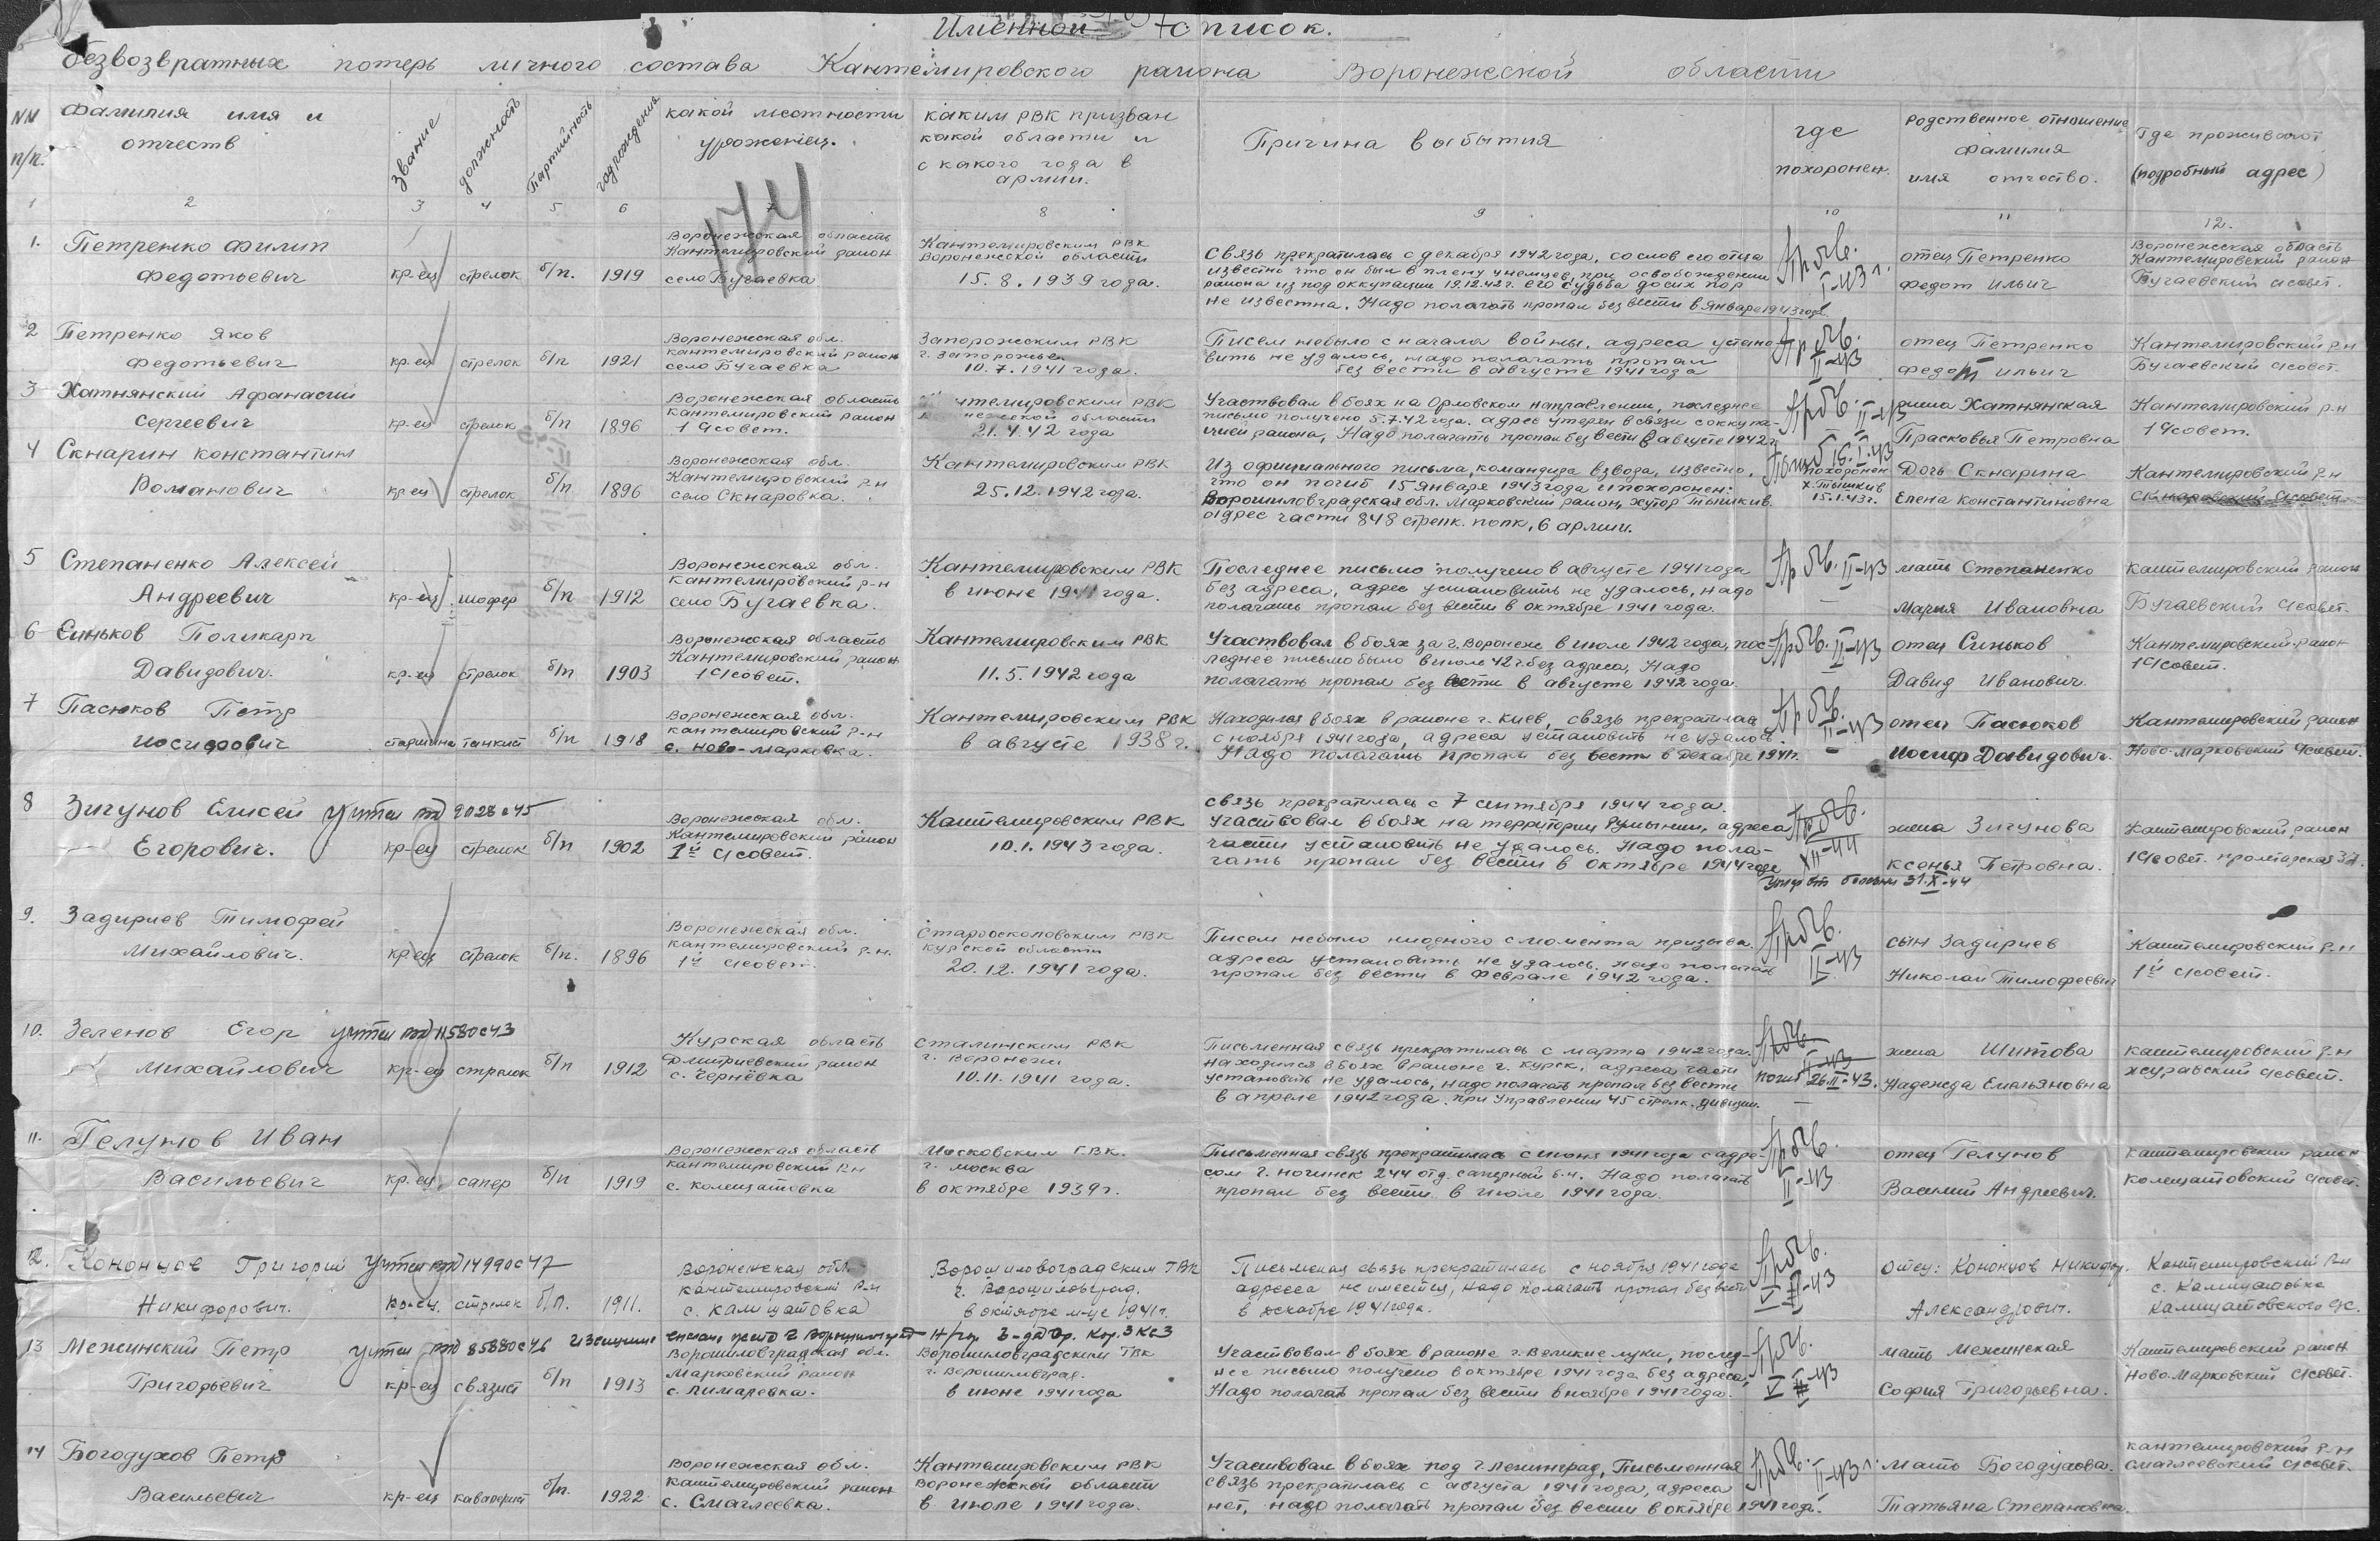 Именной список.
безвозвратных потерь личного состава Кантемировского района Воронежской области
NN п/п.
Фамилия имя и отчеств
звание
должность
Партийность
год рождения
какой местности уроженец.
каким РВК призван какой области и с какого года в армии.
Причина выбытия
где похоронен.
Родственное отношение фамилия имя отчество.
Где проживают (подробный адрес)
1 2 3 4 5 6 7 8 9 10 11 12.
174
1. Петренко Филип Федотьевич
кр-ец стрелок б/п. 1919
Воронежская область Кантемировский район село Бугаевка
Кантемировским РВК Воронежской области 15.8.1939 года.
Связь прекратилась с декабря 1942 года, со слов его отца
известно что он был в плену у немцев, при освобождении
района из под оккупации 19.12.42 г. его судьба до сих пор
не известна. Надо полагать пропал без вести в январе 1943 год.
Пр бв. I-43 г.
отец Петренко Федот Ильич
Воронежская область Кантемировский район Бугаевский с/совет.
2 Петренко Яков Федотьевич
кр-ец стрелок б/п 1921
Воронежская обл. Кантемировский район село Бугаевка
Запорожским РВК г. Запорожье 10.7.1941 года.
Писем небыло с начала войны, адреса устано-
вить не удалось, надо полагать пропал
без вести в августе 1941 года
Пр бв. II-43
отец Петренко Федот Ильич
Кантемировский р-н Бугаевский с/совет.
3 Хатнянский Афанасий Сергеевич
кр-ец стрелок б/п 1896
Воронежская область Кантемировский район 1 с/совет.
21.4.42 года
Участвовал в боях на Орловском направлении, последнее
письмо получено 5.7.42 года. адрес утерян в связи с оккупа-
цией района, Надо полагать пропал без вести в августе 1942 г.
Пр бв. II-43
жена Хатнянская Прасковья Петровна
Кантемировский р-н 1 с/совет.
4 Скнарин Константин Романович
кр-ец стрелок б/п 1896
Воронежская обл. Кантемировский р-н село Скнаровка.
Кантемировским РВК 25.12.1942 года.
Из официального письма, командира взвода, известно,
что он погиб 15 января 1943 года и похоронен:
Ворошиловградская обл. Марковский район, хутор Тишкив.
адрес части 848 стрелк. полк, 6 армии.
Погиб 15.I.43
похоронен х. Тишкив 15.1.43 г.
Дочь Скнарина Елена Константиновна
Кантемировский р-н Скнаровский с/совет
5 Степаненко Алексей Андреевич
кр-ец шофер б/п 1912
Воронежская обл. Кантемировский р-н село Бугаевка.
Кантемировским РВК в июне 1941 года.
Последнее письмо получено в августе 1941 года
без адреса, адрес установить не удалось, надо
полагать пропал без вести в октябре 1941 года.
Пр бв. II-43
мать Степаненко Мария Ивановна
Кантемировский район Бугаевский с/совет.
6 Синьков Поликарп Давидович.
кр-ец стрелок б/п 1903
Воронежская область Кантемировский район 1 с/совет.
Кантемировским РВК 11.5.1942 года
Участвовал в боях за г. Воронеж в июле 1942 года, пос-
леднее письмо было в июле 42 г. без адреса, Надо
полагать пропал без вести в августе 1942 года.
Пр бв. II-43
отец Синьков Давид Иванович.
Кантемировский район 1 с/совет.
7 Пасюков Петр Иосифович
старшина танкист б/п 1918
Воронежская обл. Кантемировский р-н с. Ново-Марковка.
Кантемировским РВК в августе 1938 г.
Находился в боях в районе г. Киев, связь прекратилась
с ноября 1941 года, адреса установить не удалось.
Надо полагать пропал без вести в декабре 1941 г.
Пр бв. II-43
отец Пасюков Иосиф Давидович.
Кантемировский район Ново-Марковский с/совет.
8 Зигунов Елисей Егорович.
учтен
кр-ец стрелок б/п 1902
Воронежская обл. Кантемировский район 1й с/совет.
Кантемировским РВК 10.1.1943 года.
связь прекратилась с 7 сентября 1944 года.
Участвовал в боях на территории Румынии, адреса
части установить не удалось. Надо пола-
гать пропал без вести в октябре 1944 года
Пр бв. XII-44
Умер от болезни 31.X-44
жена Зигунова Ксенья Петровна.
Кантемировский район 1 с/совет. Пролетарская
9. Задириев Тимофей Михайлович.
кр-ец стрелок б/п. 1896
Воронежская обл. Кантемировский р-н. 1й с/совет.
Старооскольским РВК Курской области 20.12.1941 года.
Писем небыло ниодного с момента призыва.
адреса установить не удалось. надо полагать
пропал без вести в феврале 1942 года.
Пр бв. II-43
сын Задириев Николай Тимофеевич
Кантемировский р-н 1й с/совет.
10. Зеленов Егор Михайлович
учтен 11580с43
кр-ец стрелок б/п 1912
Курская область Дмитриевский район с. Чернёвка
Сталинским РВК г. Воронежи 10.11.1941 года.
Письменная связь прекратилась с марта 1942 года.
находился в боях в районе г. Курск, адреса части
установить не удалось, надо полагать пропал без вести
в апреле 1942 года. при Управлении 45 стрелк. дивизии.
Пр бв II-43
погиб 26.II-43.
жена Шитова Надежда Емельяновна
Кантемировский р-н Журавский с/совет.
11. Гелунов Иван Васильевич
кр-ец сапер б/п 1919
Воронежская область Кантемировский р-н с. Колещатовка
Московским ГВК. г. Москва в октябре 1939 г.
Письменная связь прекратилась с июня 1941 года с адре-
сом г. Ногинск 244 отд. саперный б-н. Надо полагать
пропал без вести в июле 1941 года.
Пр бв. II-43
отец Гелунов Василий Андреевич.
Кантемировский район Колещатовский с/совет.
12. Кононцов Григорий Никифорович.
учтен 14990с47
кр-ец. стрелок б/п. 1911.
Воронежская обл. Кантемировский р-н с. Калищатовка
Ворошиловоградским ГВК г. Ворошиловград. в октябре м-це 1941 г.
Письменая связь прекратилась с ноября 1941 года
адреса не имеется, надо полагать пропал без вести
в декабре 1941 года.
Пр бв.
отец: Кононцов Никифор Александрович.
Кантемировский р-н с. Калищатовка Калищатовского с/с.
13 Межинский Петр Григорьевич
учтен 85880с46
кр-ец связист б/п 1913
Ворошиловградская обл. Марковский район с. Лимаревка.
Ворошиловградским ГВК г. Ворошиловград. в июне 1941 года
Участвовал в боях в районе г. Великие луки, послед-
нее письмо получено в октябре 1941 года без адреса,
Надо полагать пропал без вести в ноябре 1941 года.
Пр бв.
мать Межинская София Григорьевна.
Кантемировский район Ново-Марковский с/совет.
14 Богодухов Петр Васильевич
кр-ец кавалерист б/п. 1922
Воронежская обл. Кантемировский район с. Смаглеевка.
Кантемировским РВК Воронежской области в июле 1941 года.
Участвовал в боях под г. Ленинград, Письменная
связь прекратилась с августа 1941 года, адреса
нет, надо полагать пропал без вести в октябре 1941 года.
Пр бв. II-43 г.
мать Богодухова. Татьяна Степановна.
Кантемировский р-н Смаглеевский с/совет.